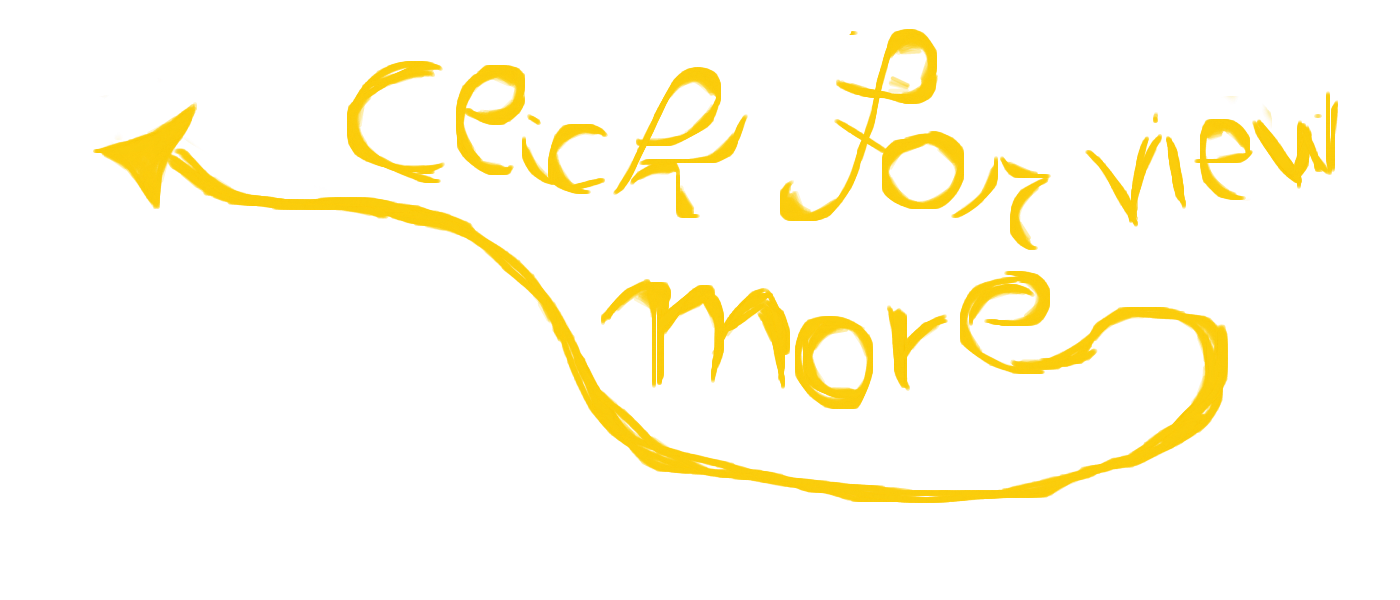 click for view
more